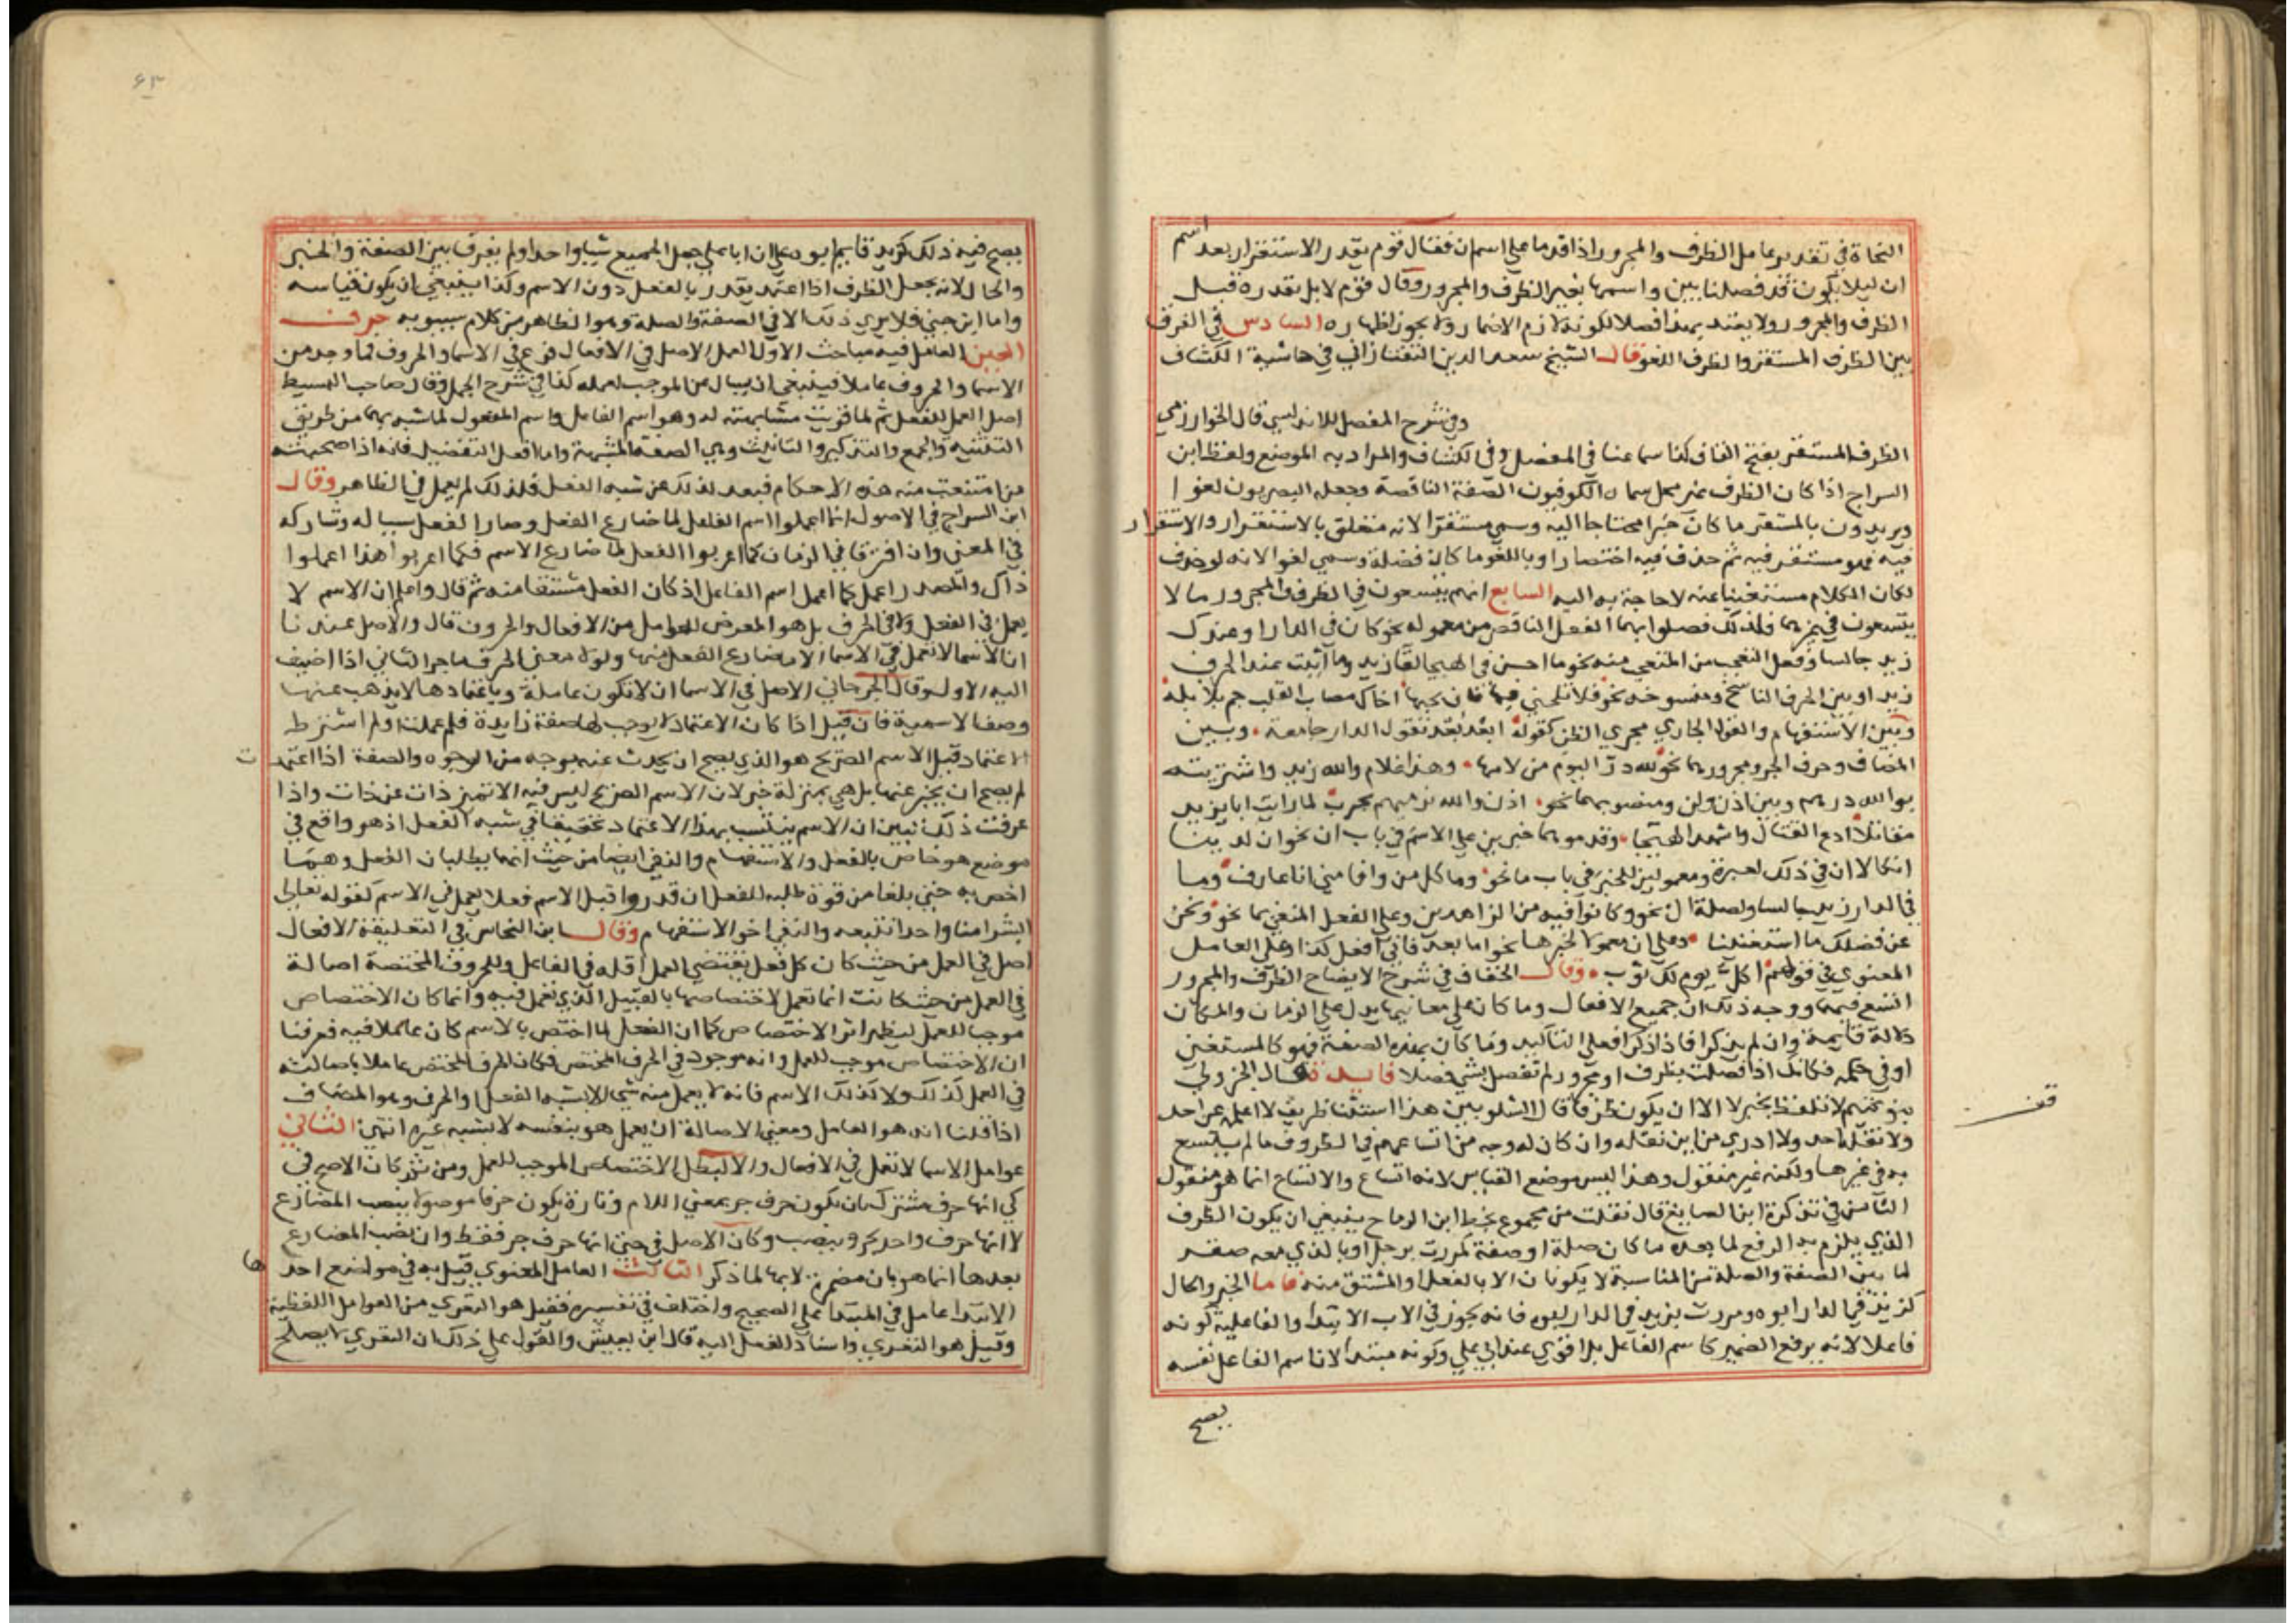 النحاة في تقدير عامل الظرف والمجرور اذا قدما على اسم ان فقال قوم يقدر الاستقرار بعد اسم
ان ليلا يكون قد فصلنا بين واسمها بغير الظرف والمجرور وقال قوم لا بل يقدره قبل
الظرف والمجرور ولا يعتد بهذا فصلا لكونه لازم الاضمار ولا يجوز اظهاره السادس في الفرق
بين الظرف المستقر والظرف اللغو قال الشيخ سعد الدين التفتازاني في حاشية الكشاف
وفي شرح المفصل للاندلسي قال الخوارزمي
الظرف المستقر بفتح القاف كذا سماعنا في المفصل وفي الكشاف والمراد به الموضع ولفظ ابن
السراج اذا كان الظرف غير محل سماه الكوفيون الصفة الناقصة وجعله البصريون لغوا
ويريدون بالمستقر ما كان خبرا محتاجا اليه وسمي مستقرا لانه متعلق بالاستقرار والاستقرار
فيه فهو مستقر فيه ثم حذف فيه اختصارا وباللغو ما كان فضلة وسمي لغوا لانه لو حذف
لكان الكلام مستغنيا عنه لا حاجة به اليه السابع انهم يتسعون في الظرف والمجرور ما لا
يتسعون في غيرهما فلذلك فصلوا بهما الفعل الناقص من معموله نحو كان في الدار او عندك
زيد جالسا وفعل التعجب من المتعجب منه نحو ما احسن في الهيجا لقا زيد وما اثبت عند الحرب
زيد او بين الحرف الناسخ ومنسوخه نحو فلا تلحني فيها فان بحبها اخاك مصاب القلب جم بلابله
وبين الاستفهام والقول الجاري مجرى الظن كقوله ابعد بعد تقول الدار جامعة وبين
المضاف وحرف الجر ومجرورهما نحو لله در اليوم من لامها وهذا غلام والله زيد واشتريته
بوالله درهم وبين اذن ولن ومنصوبهما نحو اذن والله نرميهم بحرب لما رايت ابا يزيد
مقاتلا ادع القتال واشهد الهيجا وقدموهما خبرين على الاسم في باب ان نحو ان لدينا
انكالا ان في ذلك لعبرة ومعمولين للخبر في باب ما نحو وما كل من وافا مني انا عارف وما
في الدار زيد جالسا ولصلة ال نحو وكانوا فيه من الزاهدين وعلى الفعل المنفي بما نحو ونحن
عن فضلك ما استغنينا وعلى ان معمولا لخبرها نحو اما بعد فاني افعل كذا وعلى العامل
المعنوي في قولهم اكل يوم لك ثوب وقال الخفاف في شرح الايضاح الظرف والمجرور
اتسع فيهما ووجه ذلك ان جميع الافعال وما كان على معانيها يدل على الزمان والمكان
دلالة قايمة وان لم يذكرا فاذا ذكرا فعلى التاكيد وما كان بهذه الصفة فهو كالمستغني
او في حكمه فكانك اذا فصلت بظرف او مجرور لم تفصل بشي فصلا فايدة قال الجزولي
بنو تميم لا تلفظ بخبر لا الا ان يكون ظرفا قال الشلوبين هذا استثنا ظريف لا اعلمه عن احد
ولا نقله احد ولا ادري من اين نقله وان كان له وجه من اتساعهم في الظروف ما لم يتسع
به في غيرها ولكنه غير منقول وهذا ليس موضع القياس لانه اتساع والاتساع انما هو منقول
الثامن في تذكرة ابن الصايغ قال نقلت من مجموع بخط ابن الرماح ينبغي ان يكون الظرف
الذي يلزم به الرفع لما بعده ما كان صلة او صفة كمررت برجل او بالذي معه صقر
لما بين الصفة والصلة من المناسبة لا يكونان الا بالفعل او المشتق منه فاما الخبر والحال
كزيد في الدار ابوه ومررت بزيد في الدار ابوه فانه يجوز في الاب الابتدا والفاعلية كونه
فاعلا لانه يرفع الضمير كاسم الفاعل بل اقوى عند ابي علي وكونه مبتدا لان اسم الفاعل نفسه
يصح
قف
٦٣
يصح فيه ذلك كزيد قايم ابوه على ان ابا علي جعل الجميع شيا واحدا ولم يفرق بين الصفة والخبر
والحال لانه يجعل الظرف اذا اعتمد يقدر بالفعل دون الاسم وكذا ينبغي ان يكون قياسه
واما ابن جني فلا يرى ذلك الا في الصفة والصلة وهو الظاهر من كلام سيبويه حرف
العين العامل فيه مباحث الاول العمل الاصل في الافعال فرع في الاسما والحروف فما وجد من
الاسما والحروف عاملا فينبغي ان يسال عن الموجب لعمله كذا في شرح الجمل وقال صاحب البسيط
اصل العمل للفعل ثم لما قويت مشابهته له وهو اسم الفاعل واسم المفعول لما شبه بهما من طريق
التثنية والجمع والتذكير والتانيث وهي الصفة المشبهة واما افعل التفضيل فانه اذا صحبته
من امتنعت منه هذه الاحكام فبعد لذلك عن شبه الفعل فلذلك لم يعمل في الظاهر وقال
ابن السراج في الاصول انما اعملوا اسم الفاعل لما ضارع الفعل وصار الفعل سببا له وشاركه
في المعنى وان افترقا في الزمان كما اعربوا الفعل لما ضارع الاسم فكما اعربوا هذا اعملوا
ذاك والمصدر اعمل كما اعمل اسم الفاعل اذ كان الفعل مشتقا منه ثم قال واعلم ان الاسم لا
يعمل في الفعل ولا في الحرف بل هو المعرض للعوامل من الافعال والحروف قال والاصل عندنا
ان الاسما لا تعمل في الاسما الا مضارع الفعل منها ولولا معنى الحرف ما جر الثاني اذا اضيف
اليه الاول وقال الجرجاني الاصل في الاسما ان لا تكون عاملة وباعتمادها لا يذهب عنها
وصف الاسمية فان قيل اذا كان الاعتماد لا يوجب لها صفة زايدة فلم عملت ولم اشترط
الاعتماد قيل الاسم الصريح هو الذي يصح ان يحدث عنه بوجه من الوجوه والصفة اذا اعتمدت
لم يصح ان يخبر عنها بل هي بمنزلة خبر لان الاسم الصريح ليس فيه الا تميز ذات عن ذات واذا
عرفت ذلك تبين ان الاسم يكتسب بهذا الاعتماد تحقيقا في شبه الفعل اذ هو واقع في
موضع هو خاص بالفعل والاستفهام والنفي ايضا من حيث انهما يطلبان الفعل وهما
اخص به حتى بلغا من قوة طلبه للفعل ان قدروا قبل الاسم فعلا يعمل في الاسم كقوله تعالى
ابشرا منا واحدا نتبعه والنفي اخو الاستفهام وقال ابن النحاس في التعليقة الافعال
اصل في العمل من حيث كان كل فعل يقتضي العمل اقله في الفاعل وللحروف المختصة اصالة
في العمل من حيث كانت انما تعمل لاختصاصها بالقبيل الذي تعمل فيه وانما كان الاختصاص
موجبا للعمل ليظهر اثر الاختصاص كما ان الفعل لما اختص بالاسم كان عاملا فيه فعرفنا
ان الاختصاص موجب للعمل وانه موجود في الحرف المختص فكان الحرف المختص عاملا باصالته
في العمل كذلك ولا كذلك الاسم فانه لا يعمل منه شي الا بشبه الفعل او الحرف وهو المضاف
اذا قلنا انه هو العامل ومعنى الاصالة ان يعمل هو بنفسه لا بشبه غيره انتهى الثاني
عوامل الاسما لا تعمل في الافعال والا لبطل الاختصاص الموجب للعمل ومن ثم كان الاصح في
كي انها حرف مشترك بان يكون حرف جر بمعنى اللام وتارة يكون حرفا موصولا ينصب المضارع
لا انها حرف واحد يجر وينصب وكان الاصل في حتى انها حرف جر فقط وان نصب المضارع
بعدها انما هو بان مضمرة لا بها لما ذكر الثالث العامل المعنوي قيل به في مواضع احدها
الابتدا عامل في المبتدا على الصحيح واختلف في تفسيره فقيل هو التعري من العوامل اللفظية
وقيل هو التعري واسناد الفعل اليه قال ابن يعيش والقول على ذلك ان التعري لا يصلح